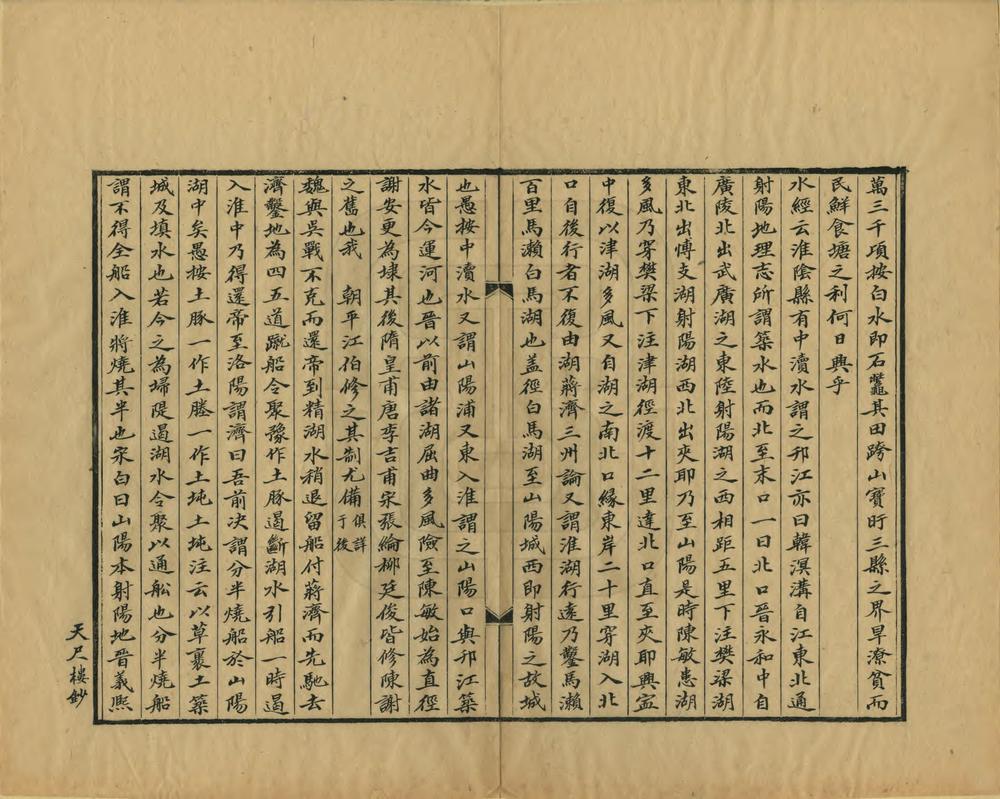 萬三千項按白水即石鼈其田跨山寶盱三縣之界旱潦貧而
民鮮食塘之利何日興乎
水經云淮陰縣有中瀆水謂之邗江亦曰韓溟溝自江東北通
射陽地理志所謂築水也而北至末口一曰北口晉永和中自
廣陵北出武廣湖之東陸射陽湖之西相距五里下注樊梁湖
東北出愽支湖射陽湖西北出夾耶乃至山陽是時陳敏患湖
多風乃穿樊梁下注津湖徑渡十二里達北口直至夾耶興寍
中復以津湖多風又自湖之南北口緣東岸二十里穿湖入北
口自後行者不復由湖蔣濟三州論又謂淮湖行遠乃鑿馬瀨
百里馬瀨白馬湖也盖徑白馬湖至山陽城西即射陽之故城
也愚按中瀆水又謂山陽浦又東入淮謂之山陽口與邗江築
水皆今運河也晉以前由諸湖屈曲多風險至陳敏始為直徑
謝安更為埭其後隋皇甫唐李吉甫宋張綸柳廷俊皆修陳謝
之舊也我　朝平江伯修之其制尤備俱詳于後
魏與吳戰不克而還帝到精湖水稍退留船付蔣濟而先馳去
濟鑿地為四五道蹴船令聚豫作土豚遏斷湖水引船一時遏
入淮中乃得還帝至洛陽謂濟曰吾前決謂分半燒船於山陽
湖中矣愚按土豚一作土塍一作土坉土坉注云以草裹土築
城及填水也若今之為埽隄遏湖水令聚以通船也分半燒船
謂不得全船入淮將燒其半也宋白曰山陽本射陽地晉義熙
天尺樓鈔